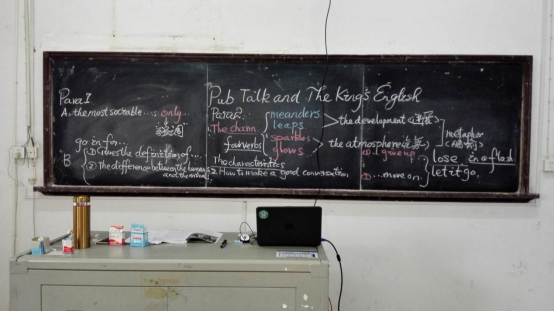 Pub Talk and The King's English
Para I
A. the most sociable ... only...
go in for...
B
① Gives the definition of...
② The difference between the human
and the animal
Para 2.
The charm
four verbs
The characteristics
meanders
leaps
sparkles
glows
the development
the atmosphere
metaphor
① I give up
② ... move on.
lose in a flash
let it go.
How to make a good conversation